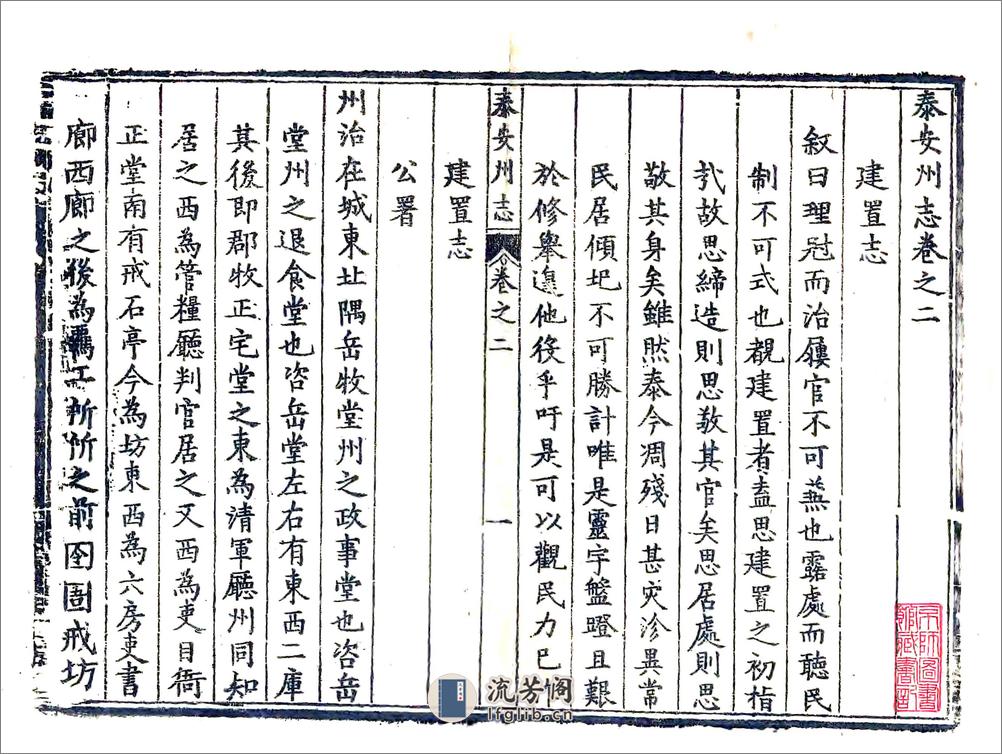 泰安州志卷之二
建置志
叙曰理冠而治屨官不可無也露處而聽民
制不可式也覩建置者盍思建置之初指
哉故思締造則思敬其官矣思居處則思
敬其身矣雖然泰今凋殘日甚灾沴異常
民居傾圯不可勝計唯是靈宇盤蹬且艱
於修舉遑他役乎吁是可以觀民力已
泰安州志 卷之二 一
建置志
公署
州治在城東北隅岳牧堂州之政事堂也咨岳
堂州之退食堂也咨岳堂左右有東西二庫
其後即郡牧正宅堂之東為清軍廳州同知
居之西為管糧廳判官居之又西為吏目衙
正堂南有戒石亭今為坊東西為六房吏書
廊西廊之後為工所所之前囹圄戒坊
流芳阁
lfglib.cn